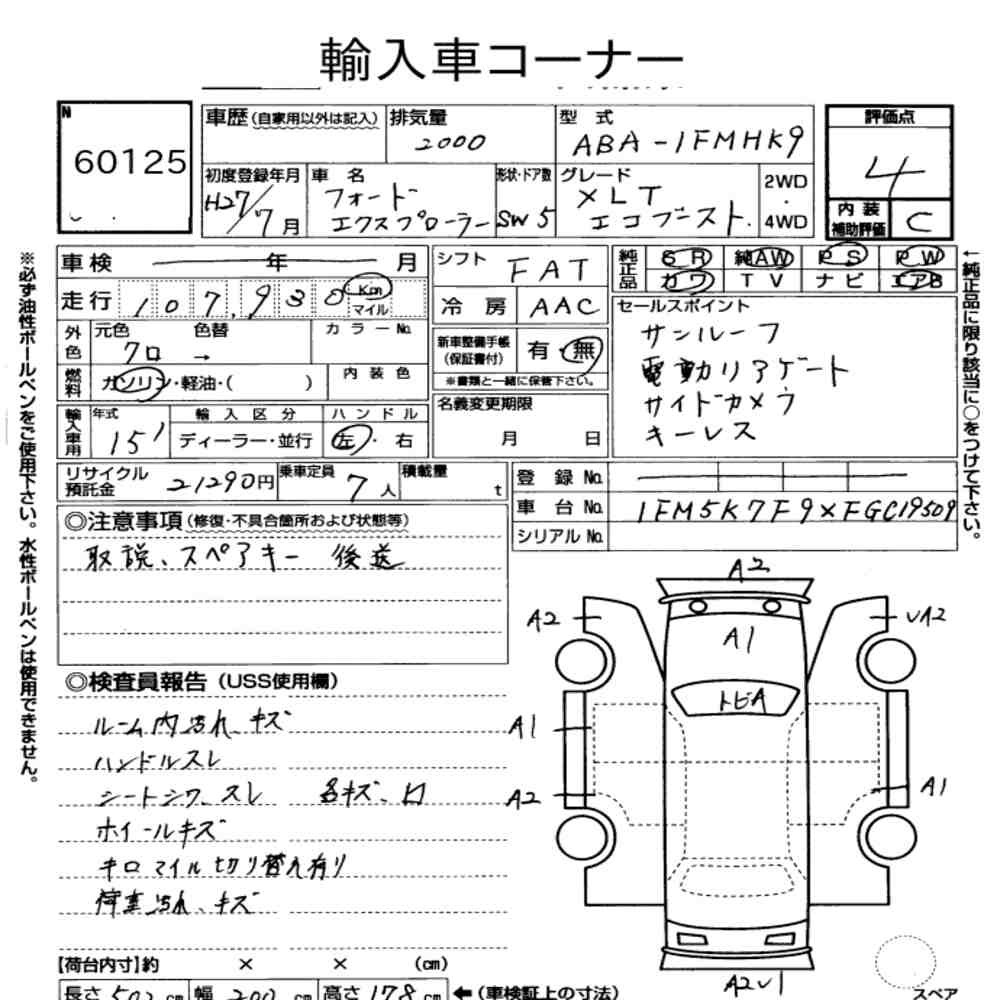 輸入車コーナー
N
60125
車歴 (自家用以外は記入)
排気量
2000
型式
ABA-1FMHK9
評価点
4
内装
補助評価
C
初度登録年月
H27/7月
車名
フォード
エクスプローラー
形状・ドア数
SW 5
グレード
XLT
エコブースト.
2WD
・
4WD
車検 年 月
走行 107,930 Km
マイル
シフト FAT
冷房 AAC
純正品 SR 純AW PS PW
カワ TV ナビ エアB
外色
元色 色替 カラーNo.
クロ →
燃料
ガソリン・軽油・( )
内装色
新車整備手帳
(保証書付)
有・無
※書類と一緒に保管下さい。
セールスポイント
サンルーフ
電動リアゲート
サイドカメラ
キーレス
輸入車用
年式
15'
輸入区分
ディーラー・並行
ハンドル
左・右
名義変更期限
月 日
リサイクル
預託金
21290円
乗車定員
7人
積載量
t
登録No.
車台No. 1FM5K7F9XFGC19509
シリアルNo.
◎注意事項 (修復・不具合箇所および状態等)
取説、スペアキー 後送
◎検査員報告 (USS使用欄)
ルーム内汚れ、キズ
ハンドルスレ
シートシワ、スレ 各キズ、凹
ホイールキズ
キロマイル切り替え有り
荷室汚れ、キズ
【荷台内寸】約 × × (cm)
長さ 502 cm 幅 200 cm 高さ 178 cm ←(車検証上の寸法)
※必ず油性ボールペンをご使用下さい。水性ボールペンは使用できません。
←純正品に限り該当に○をつけて下さい。
A2
A2
A1
UA2
トビA
A1
A2
A1
A2U1
スペア